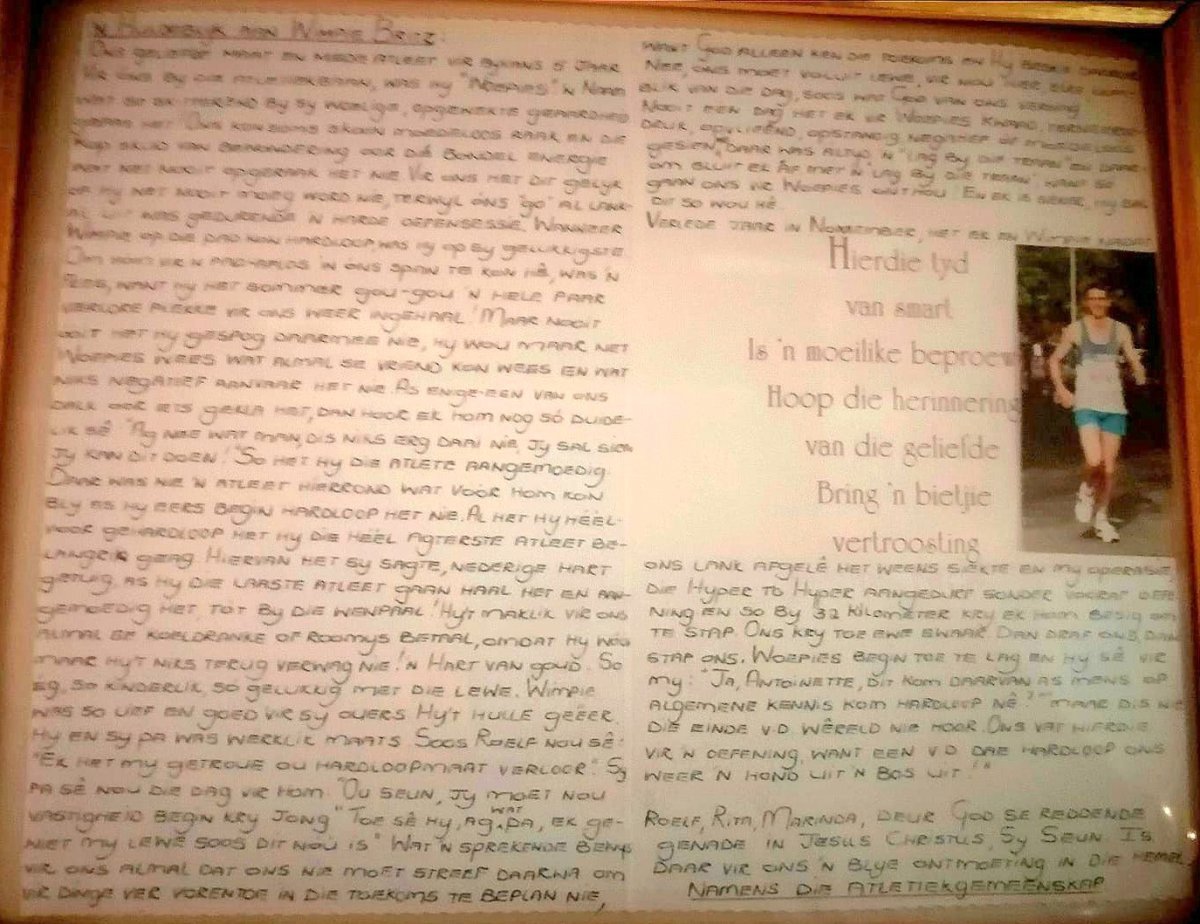 'N HULDEBLYK AAN WIMPIE BRITZ:
ONS GELIEFDE MAAT EN MEDE ATLEET VIR BYKANS 5 JAAR
VIR ONS BY DIE ATLETIEKBAAN, WAS HY "WOEPIES" 'N NAAM
WAT BY SY WOELIGE, OPGEWEKTE GEAARDHEID
GEPAS HET. ONS KON SOMS SKOON MOEDELOOS RAAK EN DIE
KOP SKUD VAN BEWONDERING OOR DIÉ BONDEL ENERGIE
WAT NET NOOIT OPGERAAK HET NIE. VIR ONS HET DIT GELYK
OF HY NET NOOIT MOEG WORD NIE, TERWYL ÓNS "GO" AL LANK-
AL UIT WAS GEDURENDE 'N HARDE OEFENSESSIE. WANNEER
WIMPIE OP DIE PAD KON HARDLOOP, WAS HY OP SY GELUKKIGSTE
OM HOM VIR 'N PADAFLOS IN ONS SPAN TE KON HÊ, WAS 'N
FEES, WANT HY HET SOMMER GOU-GOU 'N HELE PAAR
VERLORE PLEKKE VIR ONS WEER INGEHAAL! MAAR NOOIT
OOIT HET HY GESPOG DAARMEE NIE, HY WOU MAAR NET
WOEPIES WEES WAT ALMAL SE VRIEND KON WEES EN WAT
NIKS NEGATIEF AANVAAR HET NIE. AS ENIGE-EEN VAN ONS
DALK OOR IETS GEKLA HET, DAN HOOR EK HOM NOG SÓ DUIDE-
LIK SÊ "AG NEE WAT MAN, DIS NIKS ERG DAAI NIE, JY SAL SIEN
JY KAN DIT DOEN!" SO HET HY DIE ATLETE AANGEMOEDIG.
DAAR WAS NIE 'N ATLEET HIERROND WAT VÓÓR HOM KON
BLY AS HY EERS BEGIN HARDLOOP HET NIE. AL HET HY HÉÉL-
VOOR GEHARDLOOP HET HY DIE HÉÉL AGTERSTE ATLEET BE-
LANGRIK GEAG. HIERVAN HET SY SAGTE, NEDERIGE HART
GETUIG, AS HY DIE LAASTE ATLEET GAAN HAAL HET EN AAN-
GEMOEDIG HET, TOT BY DIE WENPAAL! HY'T MAKLIK VIR ONS
ALMAL SE KOELDRANKE OF ROOMYS BETAAL, OMDAT HY WOU
MAAR HY'T NIKS TERUG VERWAG NIE! 'N HART VAN GOUD. SO
EG, SO KINDERLIK, SO GELUKKIG MET DIE LEWE. WIMPIE
WAS SO LIEF EN GOED VIR SY OUERS. HY'T HULLE GEËER.
HY EN SY PA WAS WERKLIK MAATS. SOOS ROELF NOU SÊ:
"EK HET MY GETROUE OU HARDLOOPMAAT VERLOOR". SY
PA SÊ NOU DIE DAG VIR HOM "OU SEUN, JY MOET NOU
VASTIGHEID BEGIN KRY JONG" TOE SÊ HY, "AG WAT, PA, EK GE-
NIET MY LEWE SOOS DIT NOU IS" WAT 'N SPREKENDE BEWYS
VIR ONS ALMAL DAT ONS NIE MOET STREEF DAARNA OM
VIR DINGE VER VORENTOE IN DIE TOEKOMS TE BEPLAN NIE,
WANT GOD ALLEEN KEN DIE TOEKOMS EN HY BESLIS DAAROOR
NEE, ONS MOET VOLUIT LEWE, VIR NOU, VIR ELKE OOGEN-
BLIK VAN DIE DAG, SOOS WAT GOD VAN ONS VERWAG.
NOOIT EEN DAG HET EK VIR WOEPIES KWAAD, TERNEERGE-
DRUK, OPVLIEËND, OPSTANDIG, NEGATIEF OF MOEDELOOS
GESIEN, DAAR WAS ALTYD 'N "LAG BY DIE TERRIE" EN DAAR-
OM SLUIT EK AF MET 'N "LAG BY DIE TERRIE" WANT SO
GAAN ONS VIR WOEPIES ONTHOU. EN EK IS SEKER, HY SAL
DIT SO WOU HÊ.
VERLEDE JAAR IN NOVEMBER, HET EK EN WIMPIE NADAT
Hierdie tyd
van smart
Is 'n moeilike beproew
Hoop die herinnering
van die geliefde
Bring 'n bietjie
vertroosting
ONS LANK AFGELÊ HET WEENS SIEKTE EN MY OPERASIE,
DIE HYPER TO HYPER AANGEDURF SONDER VOORAF OEFE-
NING EN SO BY 32 KILOMETER KRY EK HOM BESIG OM
TE STAP. ONS KRY TOE EWE SWAAR. DAN DRAF ONS, DAN
STAP ONS. WOEPIES BEGIN TOE TE LAG EN HY SÊ VIR
MY: "JA, ANTOINETTE, DIT KOM DAARVAN AS MENS OP
ALGEMENE KENNIS KOM HARDLOOP NÊ?" "MAAR DIS NIE
DIE EINDE V.D WÊRELD NIE HOOR. ONS VAT HIERDIE
VIR 'N OEFENING, WANT EEN V.D DAE HARDLOOP ONS
WEER 'N HOND UIT 'N BOS UIT!"
ROELF, RITA, MARINDA, DEUR GOD SE REDDENDE
GENADE IN JESUS CHRISTUS, SY SEUN IS
DAAR VIR ONS 'N BLYE ONTMOETING IN DIE HEMEL
NAMENS DIE ATLETIEKGEMEENSKAP